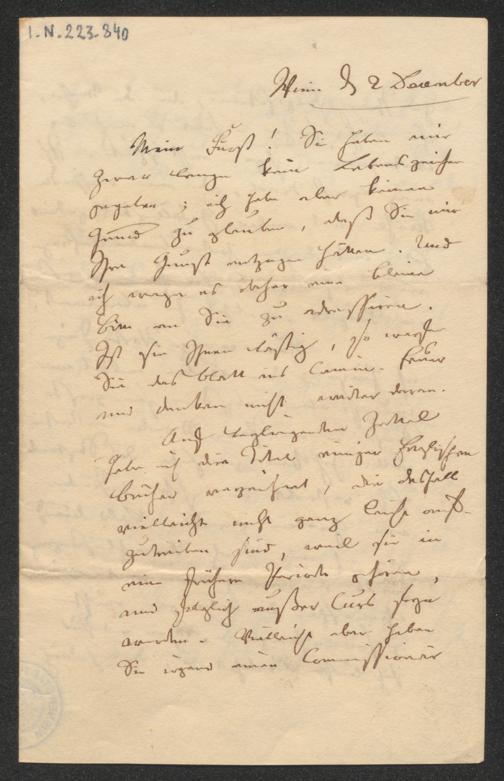 I. N. 223.840
Wien d 2 December
Mein Fürst! Sie haben mir
zwar lange kein Lebenszeichen
gegeben; ich habe aber keinen
Grund zu glauben, daß Sie mir
Ihre Gunst entzogen hätten. Und
ich wage es daher eine kleine
Bitte an Sie zu adressiren.
Ist sie Ihnen lästig, so werfen
Sie das Blatt ins Camin-Feuer
und denken nicht weiter daran.
Auf beyliegendem Zettel
habe ich die Titel einiger Englischen
Bücher verzeichnet, die deshalb
vielleicht nicht ganz leicht auf-
zutreiben sind, weil sie in
eine frühere Periode gehören,
und außer Curs
werden. Vielleicht aber haben
Sie irgend einen Commissionär